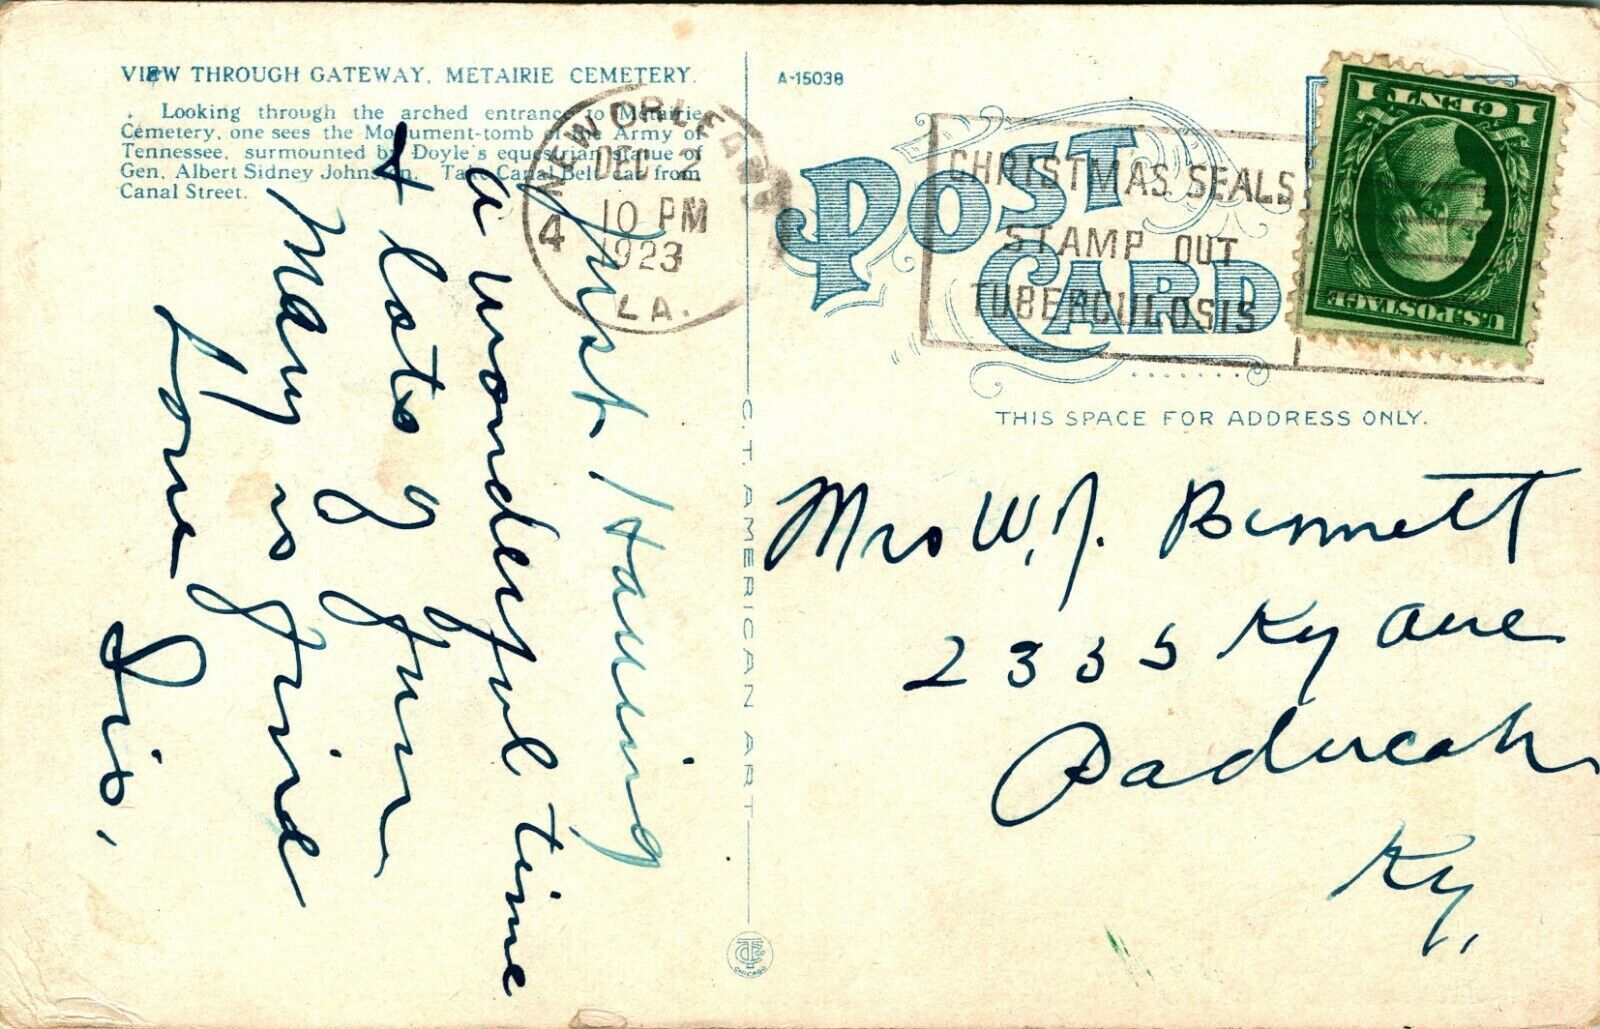 VIEW THROUGH GATEWAY, METAIRIE CEMETERY.
Looking through the arched entrance to Metairie
Cemetery, one sees the Monument-tomb of the Army of
Tennessee, surmounted by Doyle's equestrian statue of
Gen. Albert Sidney Johnston. Take Canal Belt car from
Canal Street.
Just Having
a wonderful time
+ lots of fun
Mary is fine
Love
Sis.
NEW ORLEANS
DEC 2
10 PM
1923
4
LA.
C. T. AMERICAN ART
CHICAGO
A-15038
POST CARD
CHRISTMAS SEALS
STAMP OUT
TUBERCULOSIS
U.S. POSTAGE
1 CENT 1
THIS SPACE FOR ADDRESS ONLY.
Mrs W. J. Bennett
2335 Ky Ave
Paducah
Ky,